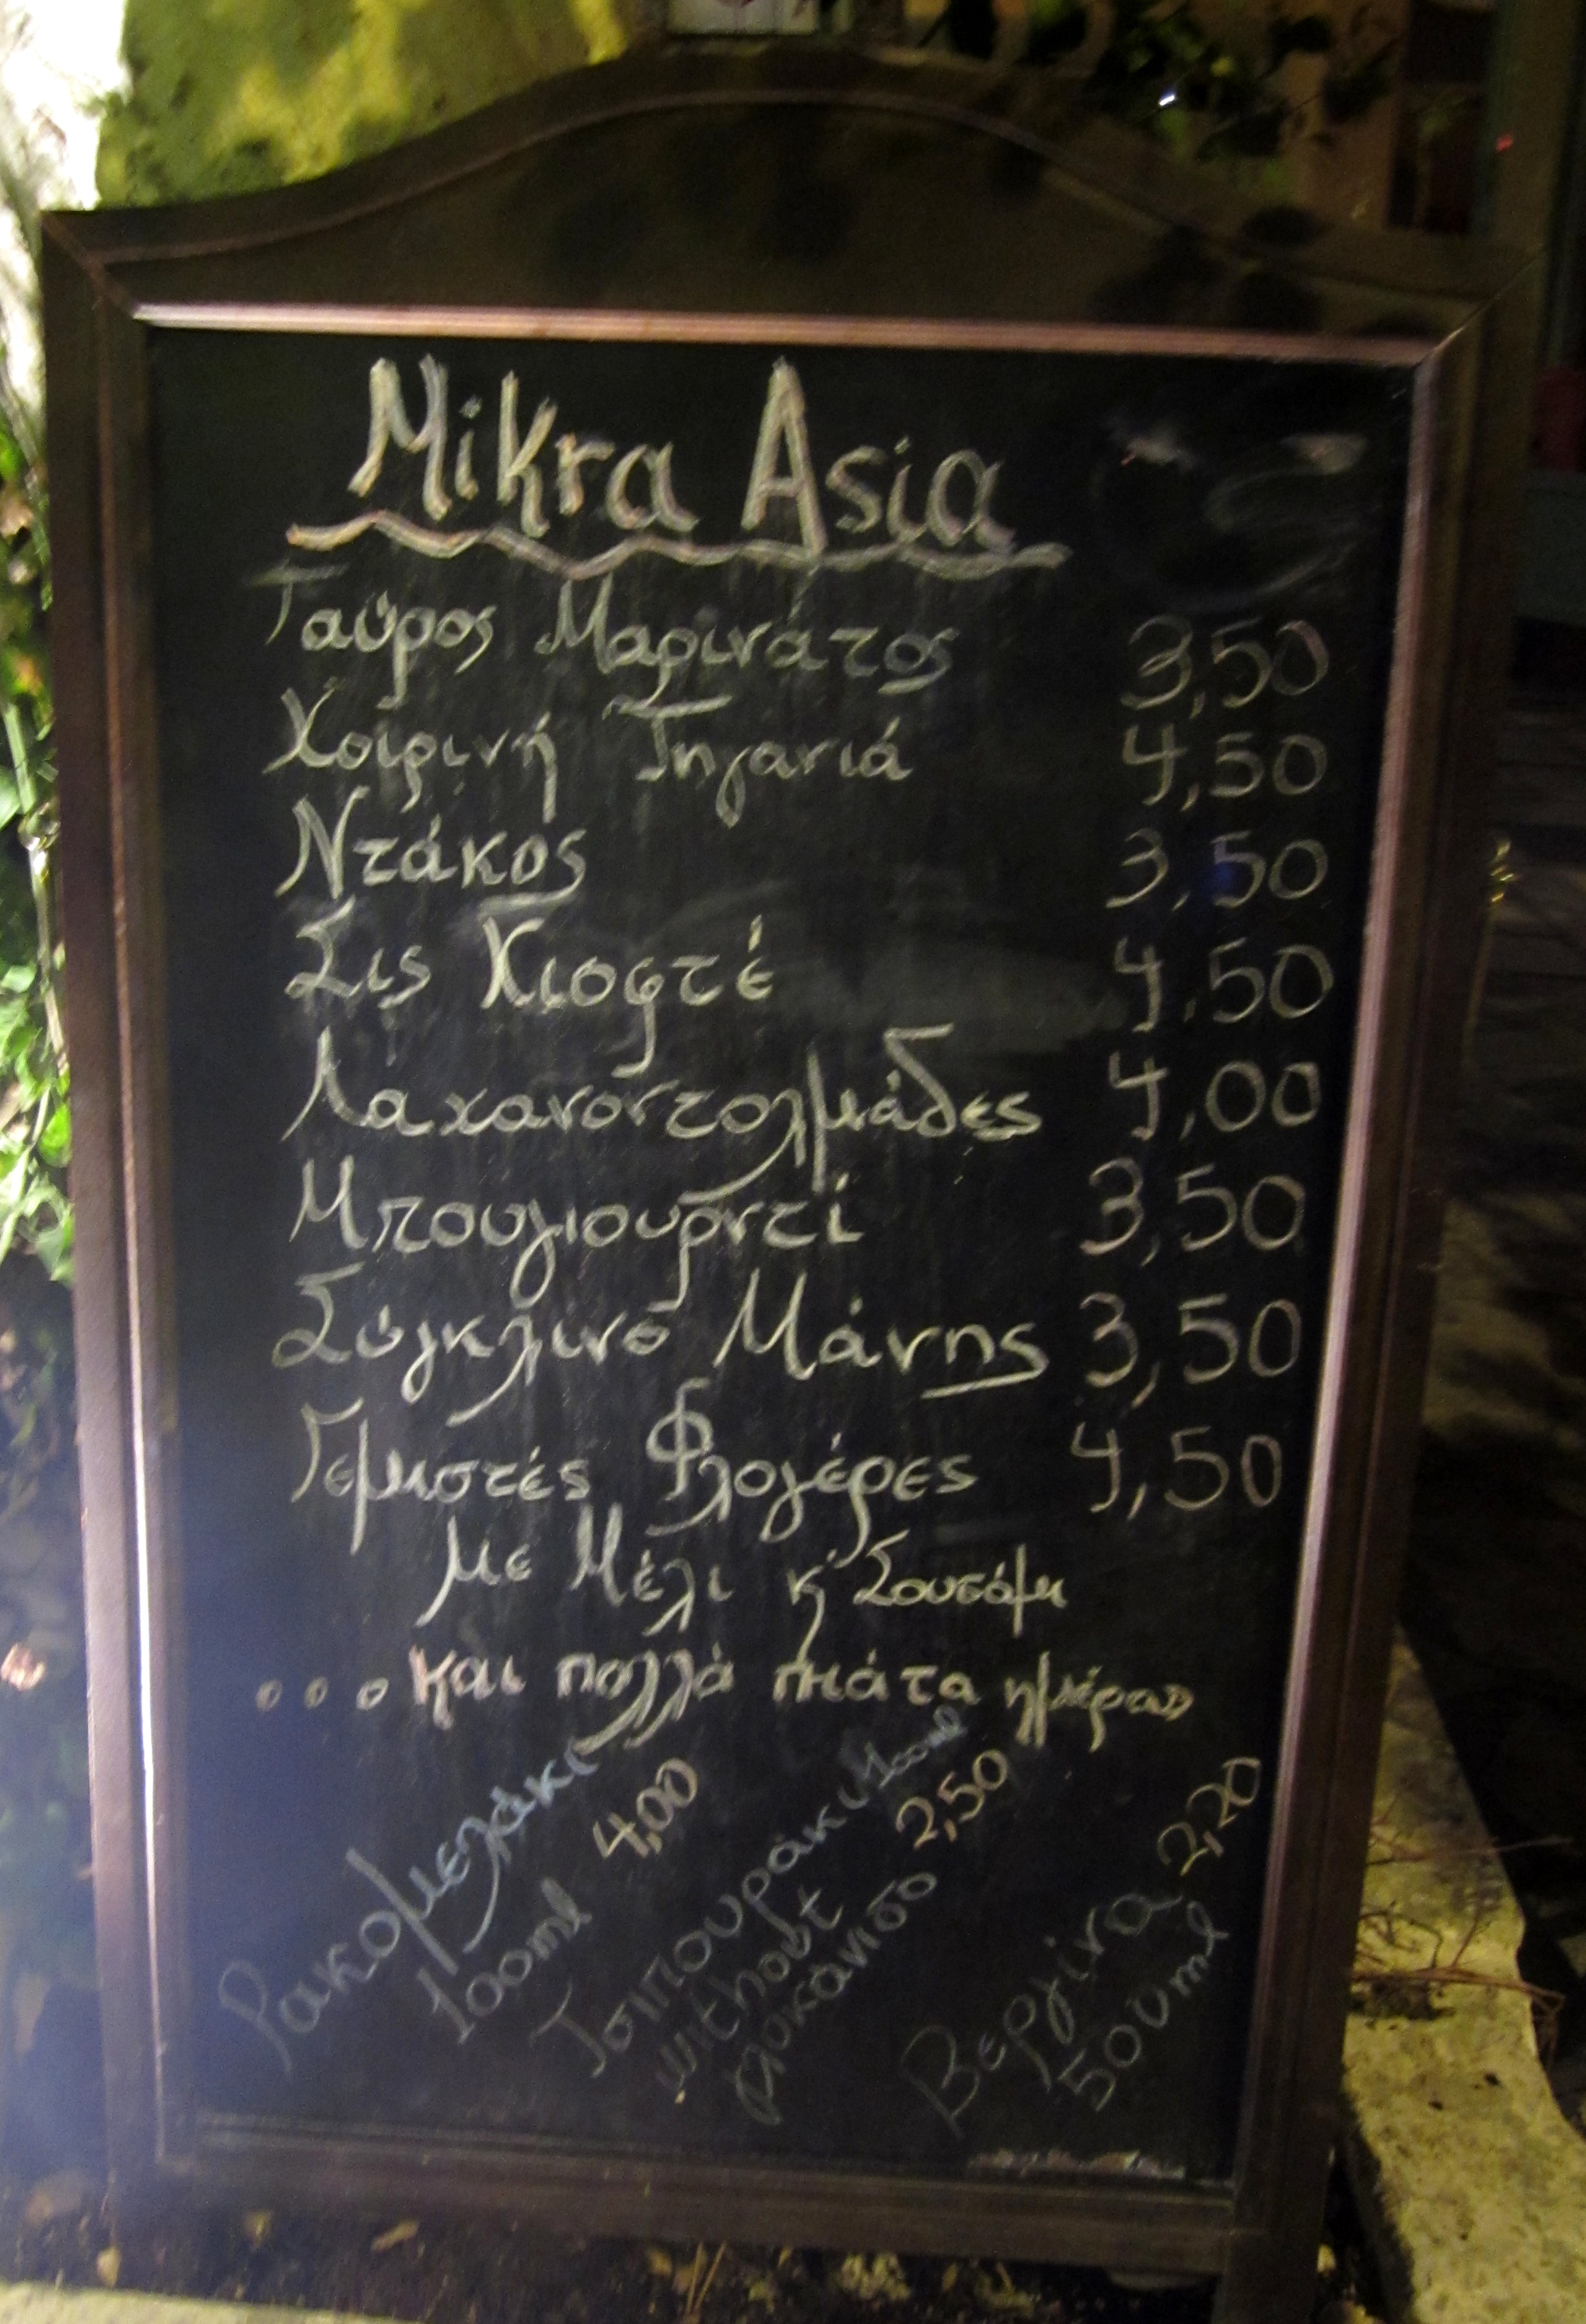 Mikra Asia
Γαύρος Μαρινάτος 3,50
Χοιρινή Τηγανιά 4,50
Ντάκος 3,50
Σις Κιοφτέ 4,50
Λαχανοντολμάδες 4,00
Μπουγιουρντί 3,50
Σύγκλινο Μάνης 3,50
Γεμιστές Φλογέρες 4,50
με Μέλι κ' Σουσάμι
... και πολλά πιάτα ημέρας
Ρακομελάκι
100ml 4,00
Τσιπουράκι 100ml
without 2,50
γλυκάνισο
Βεργίνα 2,20
500ml